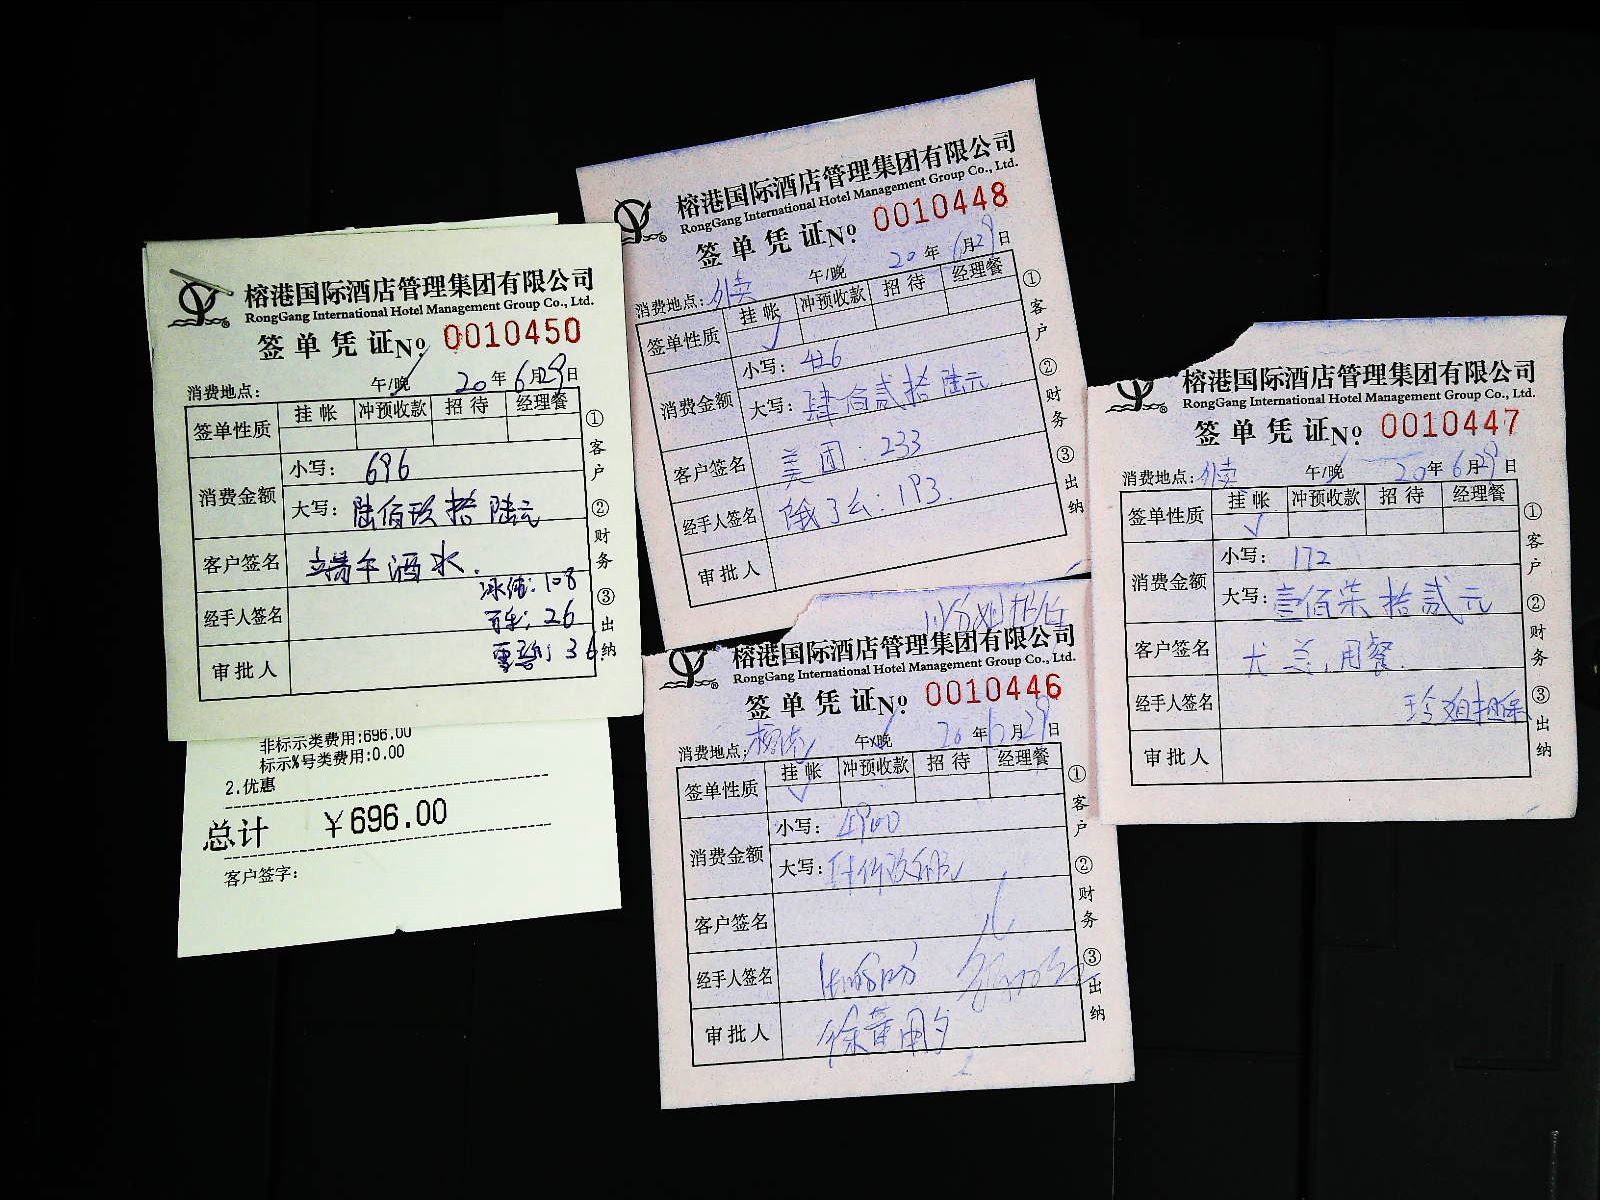 榕港国际酒店管理集团有限公司
RongGang International Hotel Management Group Co., Ltd.
签单凭证 No. 0010450
消费地点: 午/晚 20年6月29日
签单性质 挂帐 冲预收款 招待 经理餐
消费金额 小写: 696
大写: 陆佰玖拾陆元
客户签名 端午酒水.
冰纯: 108
经手人签名 百乐: 26
雪碧 36
审批人
①客户 ②财务 ③出纳
非标示类费用:696.00
标示%号类费用:0.00
2.优惠
总计 ￥696.00
客户签字:
榕港国际酒店管理集团有限公司
RongGang International Hotel Management Group Co., Ltd.
签单凭证 No. 0010448
消费地点: 外卖 午/晚 20年6月29日
签单性质 挂帐 冲预收款 招待 经理餐
消费金额 小写: 426
大写: 肆佰贰拾陆元
客户签名 美团: 233
经手人签名 饿了么: 193.
审批人
①客户 ②财务 ③出纳
榕港国际酒店管理集团有限公司
RongGang International Hotel Management Group Co., Ltd.
签单凭证 No. 0010446
消费地点: 午/晚 20年6月29日
签单性质 挂帐 冲预收款 招待 经理餐
消费金额 小写:
大写:
客户签名
经手人签名
审批人 徐董用
①客户 ②财务 ③出纳
榕港国际酒店管理集团有限公司
RongGang International Hotel Management Group Co., Ltd.
签单凭证 No. 0010447
消费地点: 外卖 午/晚 20年6月29日
签单性质 挂帐 冲预收款 招待 经理餐
消费金额 小写: 172
大写: 壹佰柒拾贰元
客户签名 用餐.
经手人签名 玲姐担保
审批人
①客户 ②财务 ③出纳